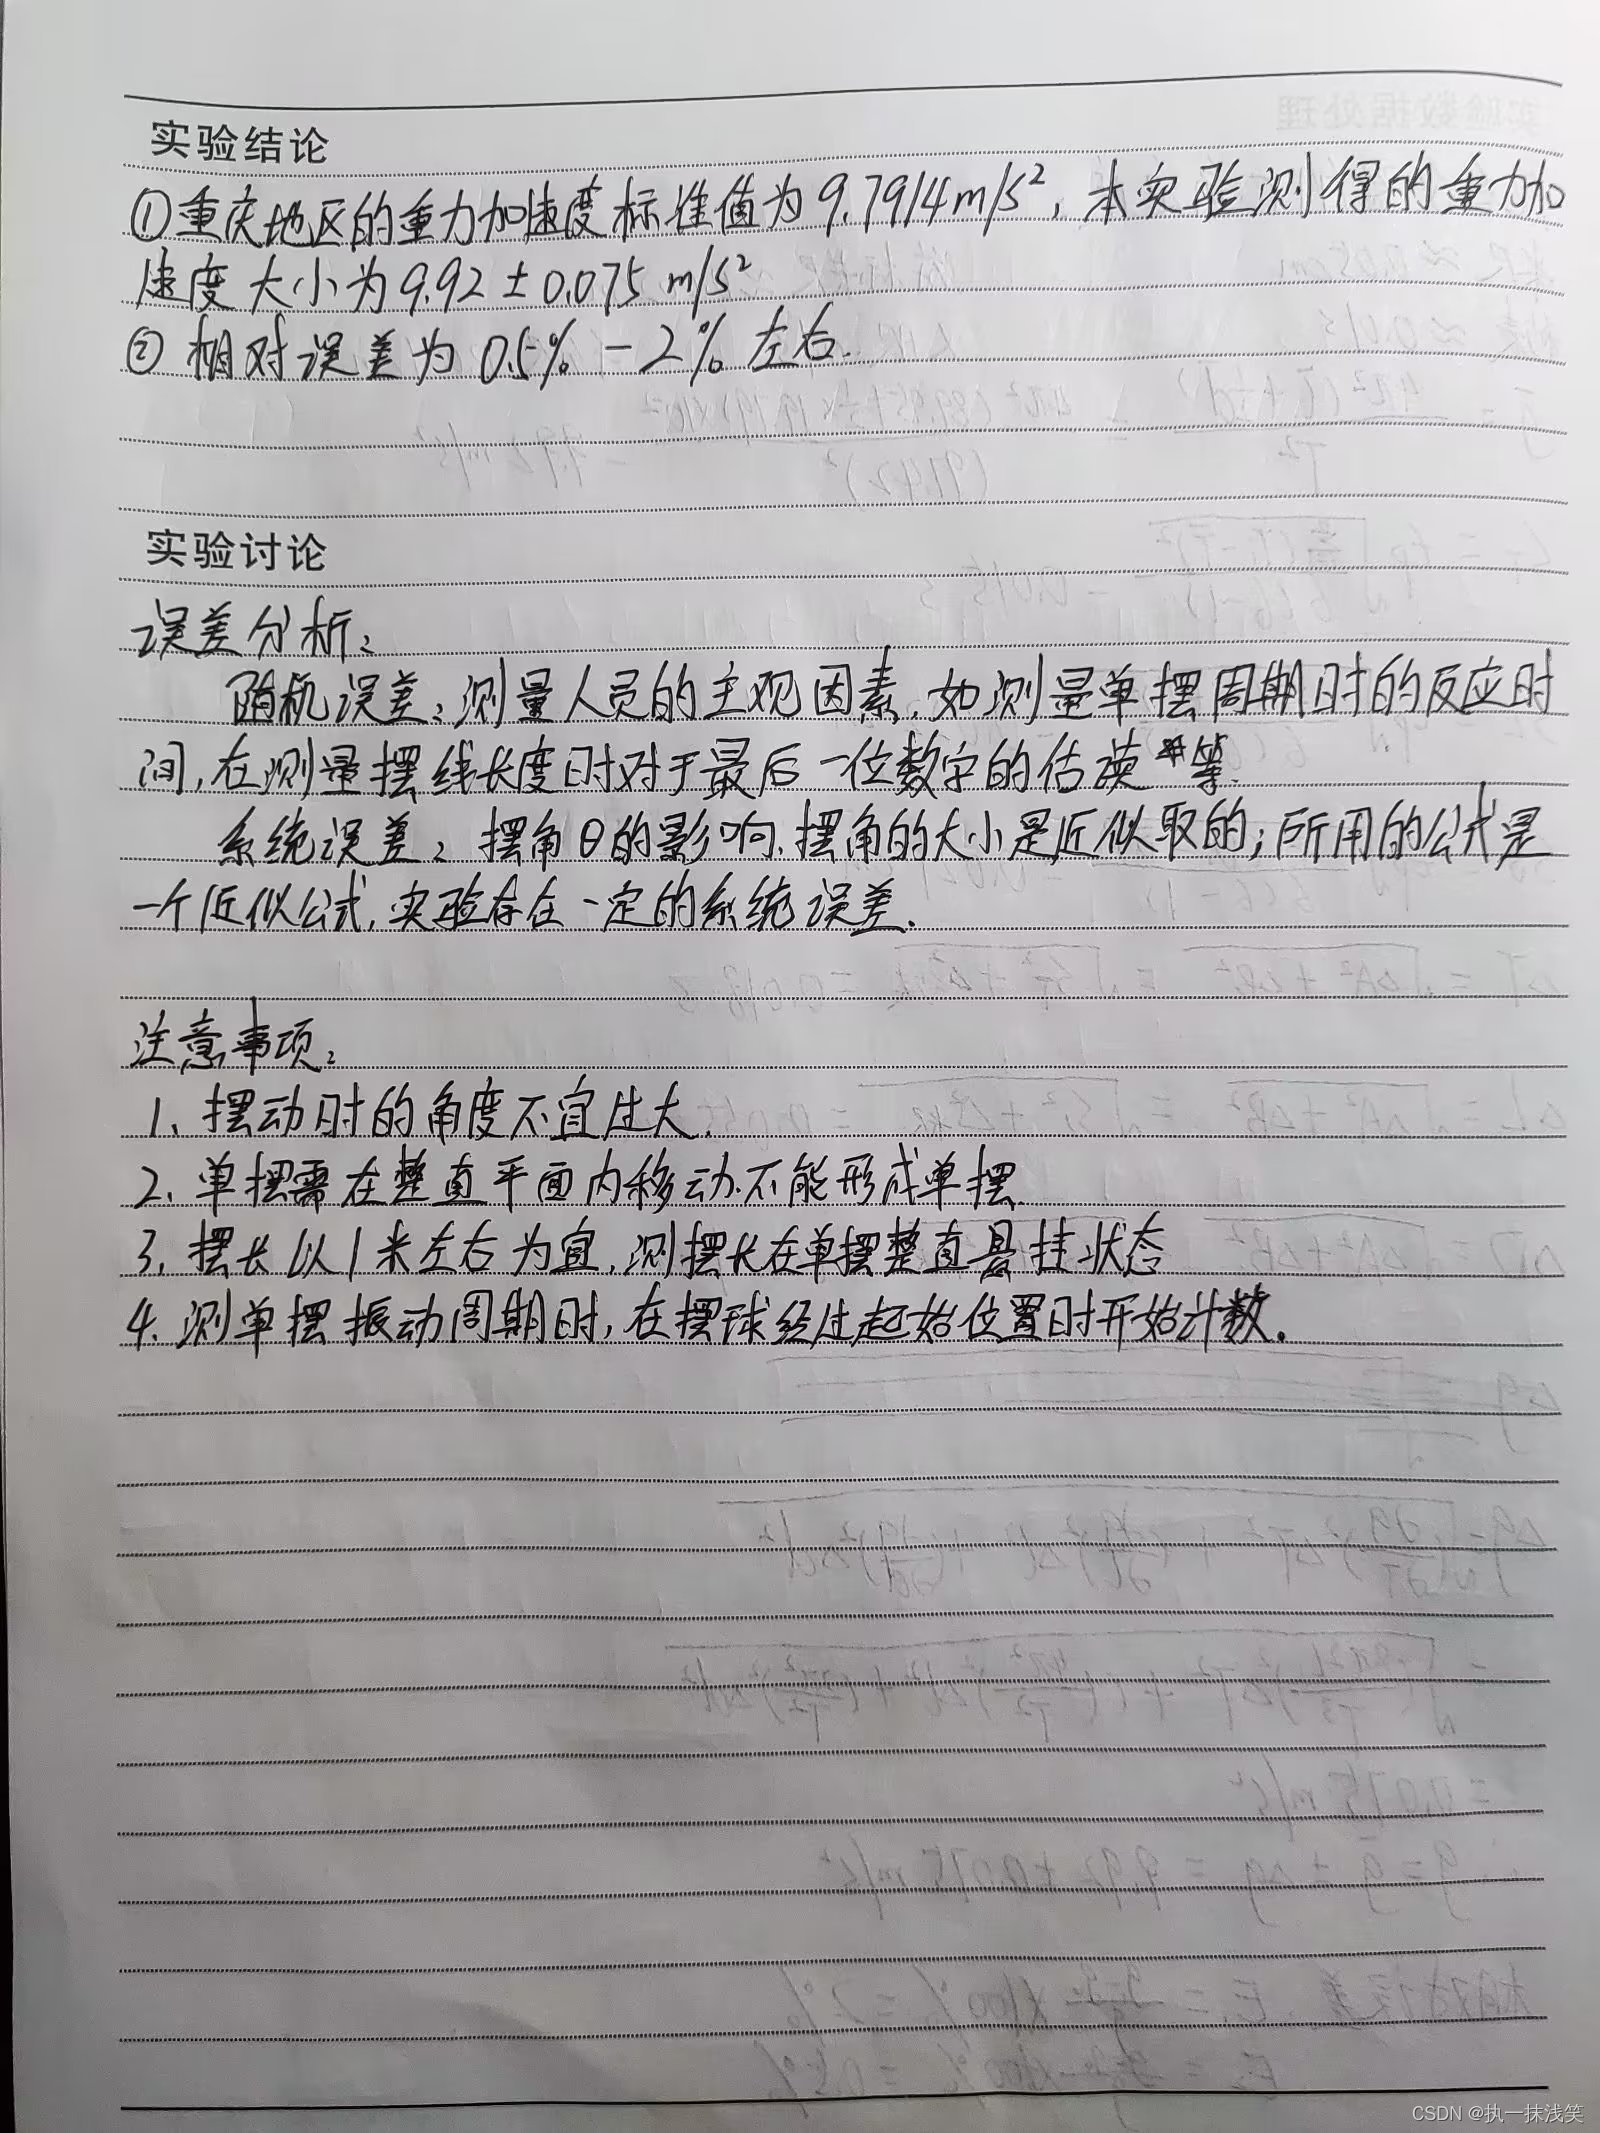 实验结论
①重庆地区的重力加速度标准值为9.7914m/s²,本实验测得的重力加
速度大小为9.92±0.075 m/s²
② 相对误差为 0.5% - 2% 左右.
实验讨论
误差分析:
随机误差:测量人员的主观因素,如测量单摆周期时的反应时
间,在测量摆线长度时对于最后一位数字的估读等.
系统误差:摆角θ的影响,摆角的大小是近似取的;所用的公式是
一个近似公式,实验存在一定的系统误差.
注意事项:
1、摆动时的角度不宜过大.
2、单摆需在整直平面内移动.不能形成单摆.
3、摆长以1米左右为宜,测摆长在单摆整直悬挂状态
4、测单摆振动周期时,在摆球经过起始位置时开始计数.
CSDN @执一抹浅笑